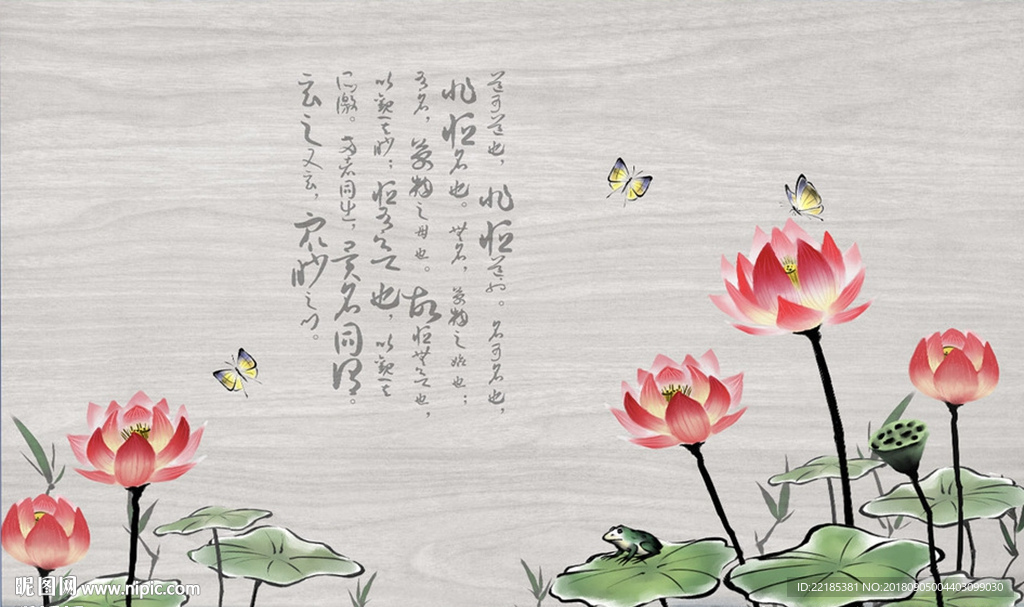 道可道也，非恒道也。名可名也，
非恒名也。無名，萬物之始也；
有名，萬物之母也。故恒無欲也，
以觀其眇；恒有欲也，以觀其
所徼。兩者同出，異名同謂。
玄之又玄，眾眇之門。
昵图网 www.nipic.com
ID:22185381 NO:20180905004403099030